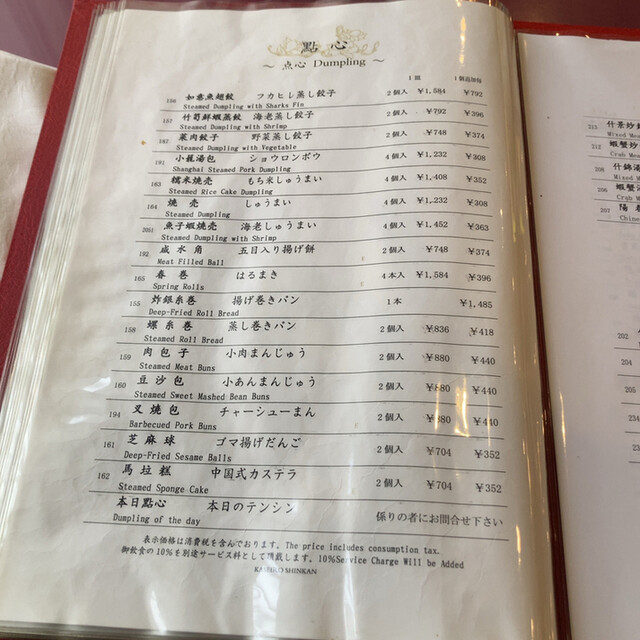 點心
～ 点心 Dumpling ～
1皿 1個追加毎
156 如意魚翅餃 フカヒレ蒸し餃子 2個入 ¥1,584 ¥792
Steamed Dumpling with Sharks Fin
157 竹筍鮮蝦蒸餃 海老蒸し餃子 2個入 ¥792 ¥396
Steamed Dumpling with Shrimp
187 菜肉餃子 野菜蒸し餃子 2個入 ¥748 ¥374
Steamed Dumpling with Vegetable
191 小籠湯包 ショウロンポウ 4個入 ¥1,232 ¥308
Shanghai Steamed Pork Dumpling
163 糯米焼売 もち米しゅうまい 4個入 ¥1,408 ¥352
Steamed Rice Cake Dumpling
164 焼売 しゅうまい 4個入 ¥1,232 ¥308
Steamed Dumpling
2051 魚子蝦焼売 海老しゅうまい 4個入 ¥1,452 ¥363
Steamed Dumpling with Shrimp
192 咸水角 五目入り揚げ餅 2個入 ¥748 ¥374
Meat Filled Ball
165 春巻 はるまき 4本入 ¥1,584 ¥396
Spring Rolls
155 炸銀糸巻 揚げ巻きパン 1本 ¥1,485
Deep-Fried Roll Bread
158 螺糸巻 蒸し巻きパン 2個入 ¥836 ¥418
Steamed Roll Bread
159 肉包子 小肉まんじゅう 2個入 ¥880 ¥440
Steamed Meat Buns
160 豆沙包 小あんまんじゅう 2個入 ¥880 ¥440
Steamed Sweet Mashed Bean Buns
194 叉焼包 チャーシューまん 2個入 ¥880 ¥440
Barbecued Pork Buns
161 芝麻球 ゴマ揚げだんご 2個入 ¥704 ¥352
Deep-Fried Sesame Balls
162 馬拉糕 中国式カステラ 2個入 ¥704 ¥352
Steamed Sponge Cake
本日點心 本日のテンシン 係りの者にお問合せ下さい
Dumpling of the day
表示価格は消費税を含んでおります。The price includes consumption tax.
御飲食の10％を別途サービス料として頂戴します。10%Service Charge Will be Added
SHINKAN
213 竹景炒
Mixed Mea
212 蝦蟹炒
Crab W
208 什錦湯
Mixed W
206 蝦蟹
Crab W
207 陽春
Chine
202
204
205
234